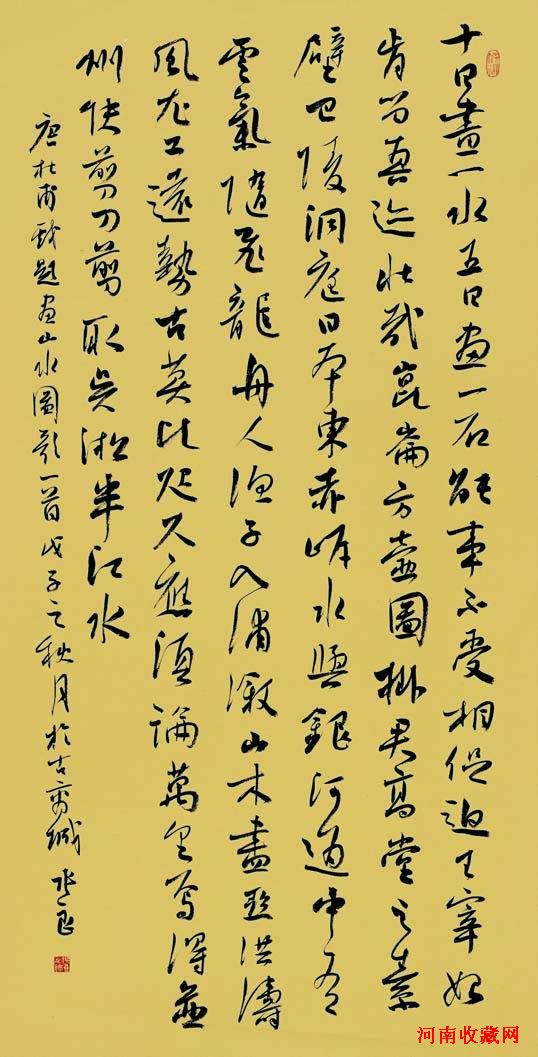 十日畫一水五日画一石能事不受相促迫王宰始
肯留真迹壮哉崑崙方壺圖掛君高堂之素
壁巴陵洞庭日本東赤岸水與銀河通中有
雲氣隨飛龍舟人漁子入浦漵山木盡亞洪濤
風尤工遠勢古莫比咫尺應須論萬里焉得並
州快剪刀剪取吴淞半江水
唐杜甫戲題画山水圖歌一首戊子之秋月於古商城
河南收藏网